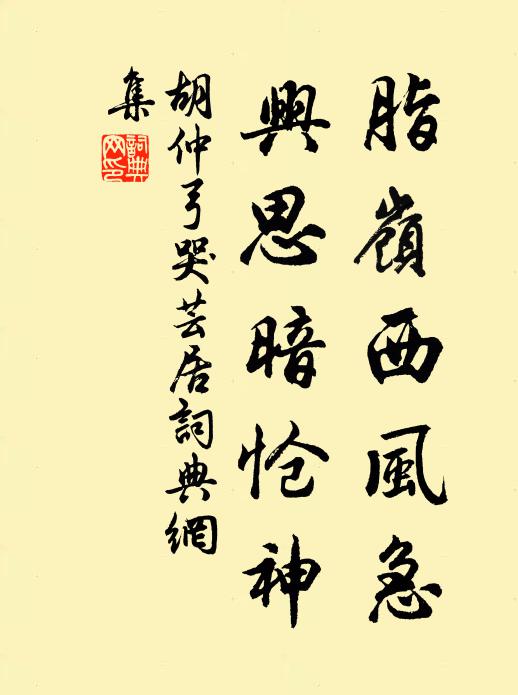 脂嶺西風急
興思暗愴神
胡仲弓哭芸居詞典網
集
詞典網印